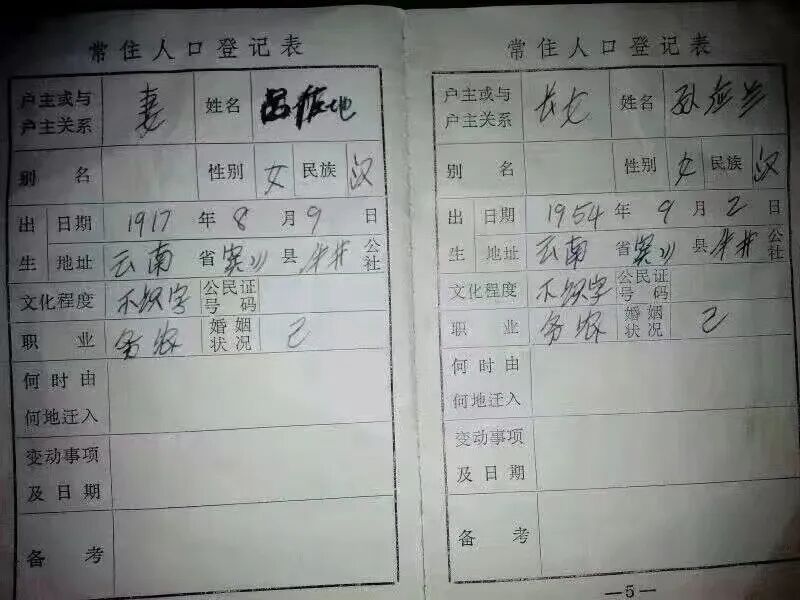 常住人口登记表
户主或与户主关系 妻 姓名 吕 地
别名 性别 女 民族 汉
出生 日期 1917年8月9日
地址 云南省宾川县牛井公社
文化程度 不识字 公民证号码
职业 务农 婚姻状况 已
何时由何地迁入
变动事项及日期
备考
常住人口登记表
户主或与户主关系 长女 姓名 孙
别名 性别 女 民族 汉
出生 日期 1954年9月2日
地址 云南省宾川县牛井公社
文化程度 不识字 公民证号码
职业 务农 婚姻状况 已
何时由何地迁入
变动事项及日期
备考
—5—